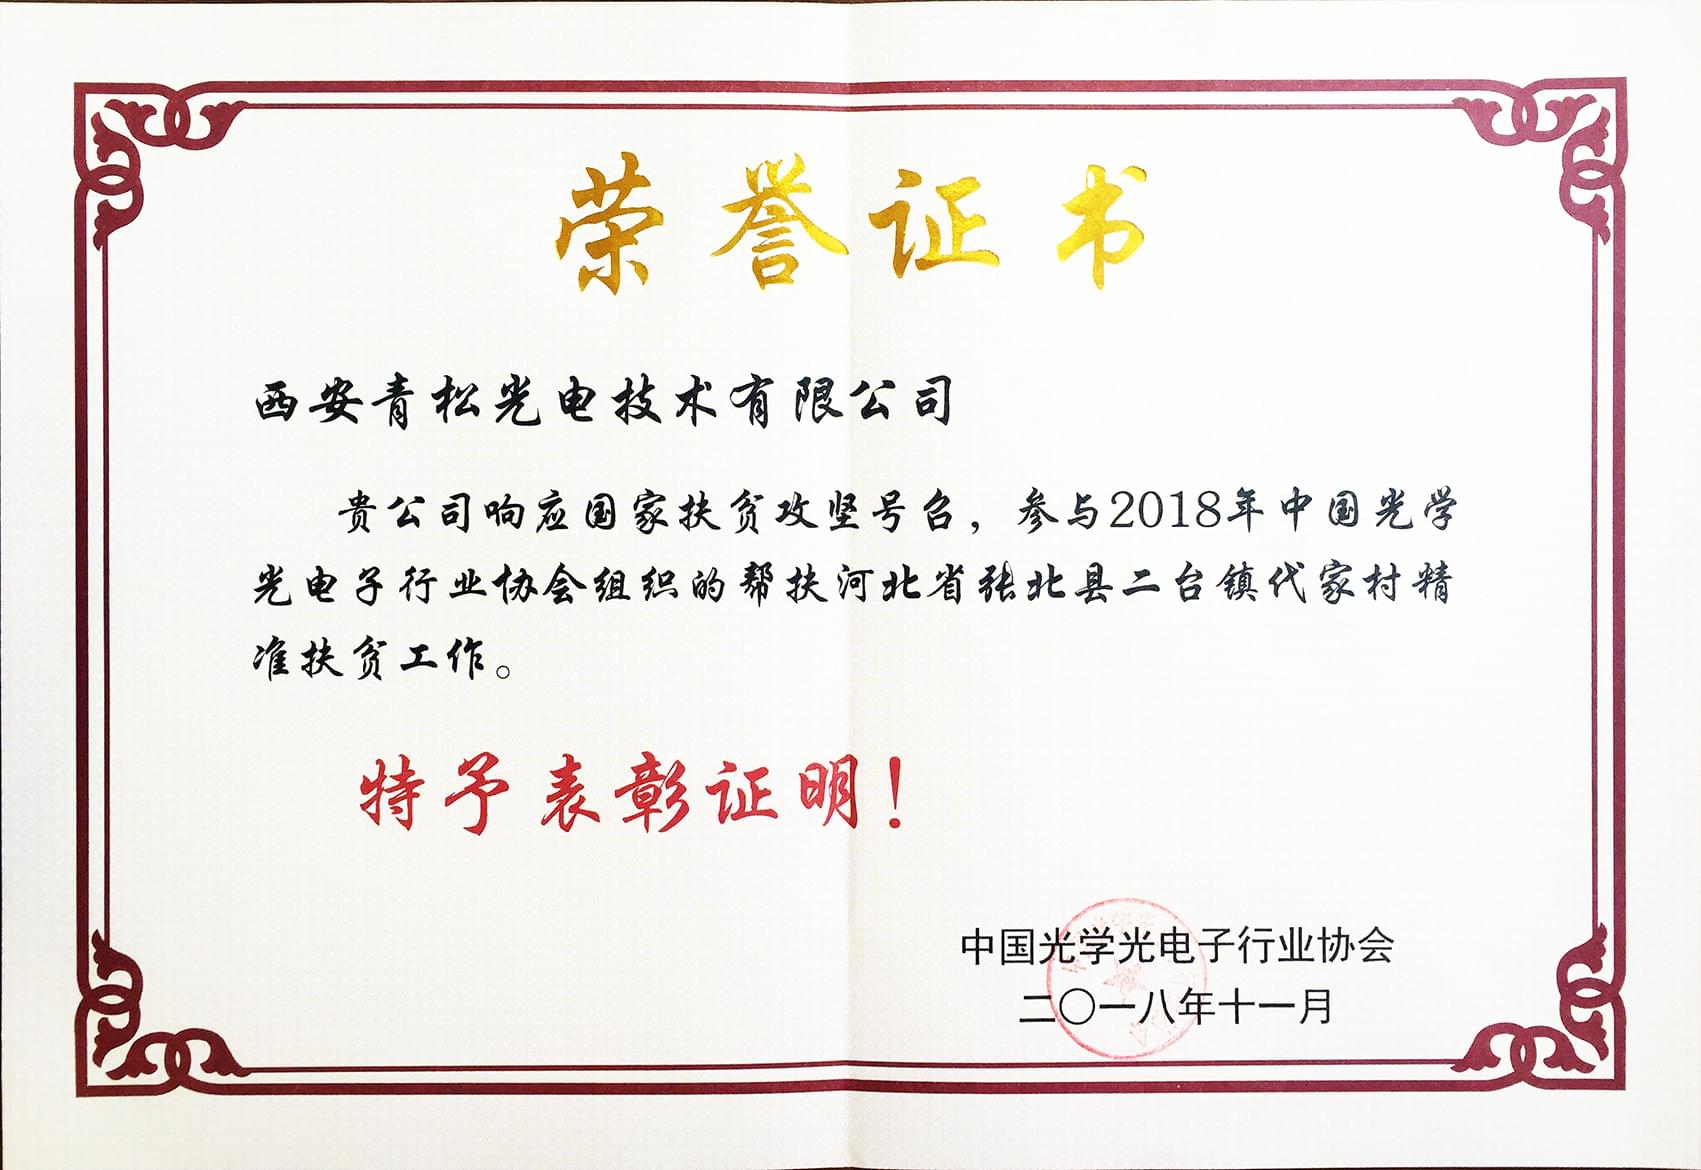 荣誉证书
西安青松光电技术有限公司
贵公司响应国家扶贫攻坚号召，参与2018年中国光学
光电子行业协会组织的帮扶河北省张北县二台镇代家村精
准扶贫工作。
特予表彰证明！
中国光学光电子行业协会
二〇一八年十一月